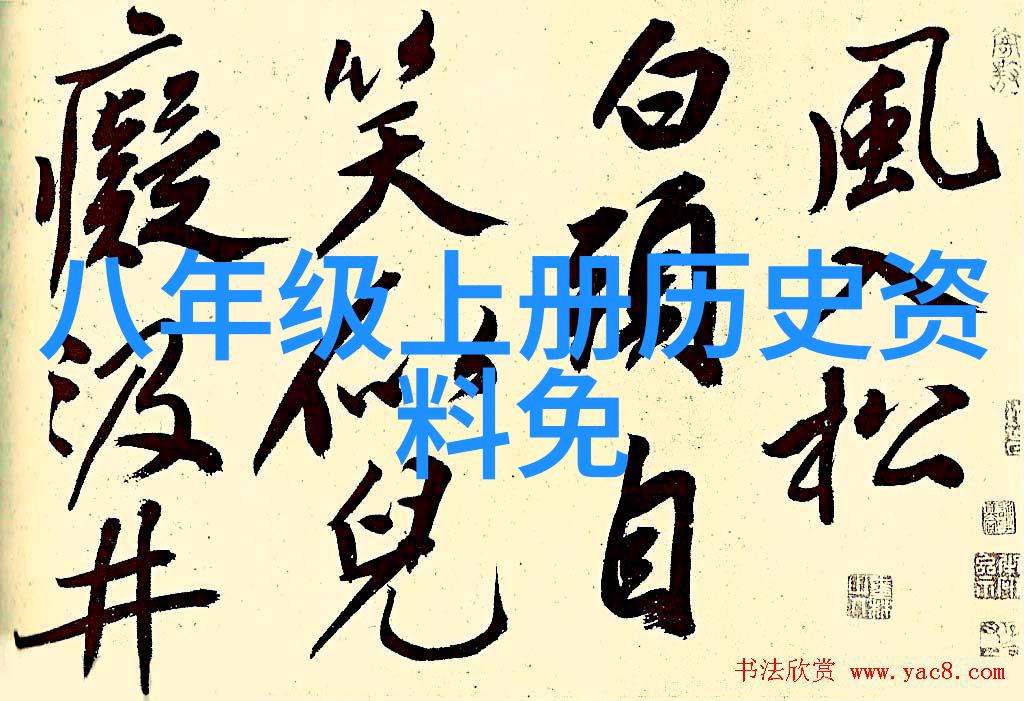 風入松
白頭自
笑似兒
癡汲井
八年级上册历史资
料免
书法欣赏 www.yac8.com